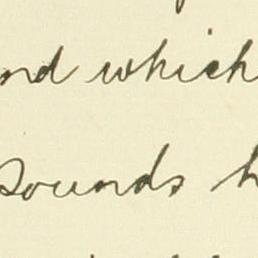 nd which
sounds h